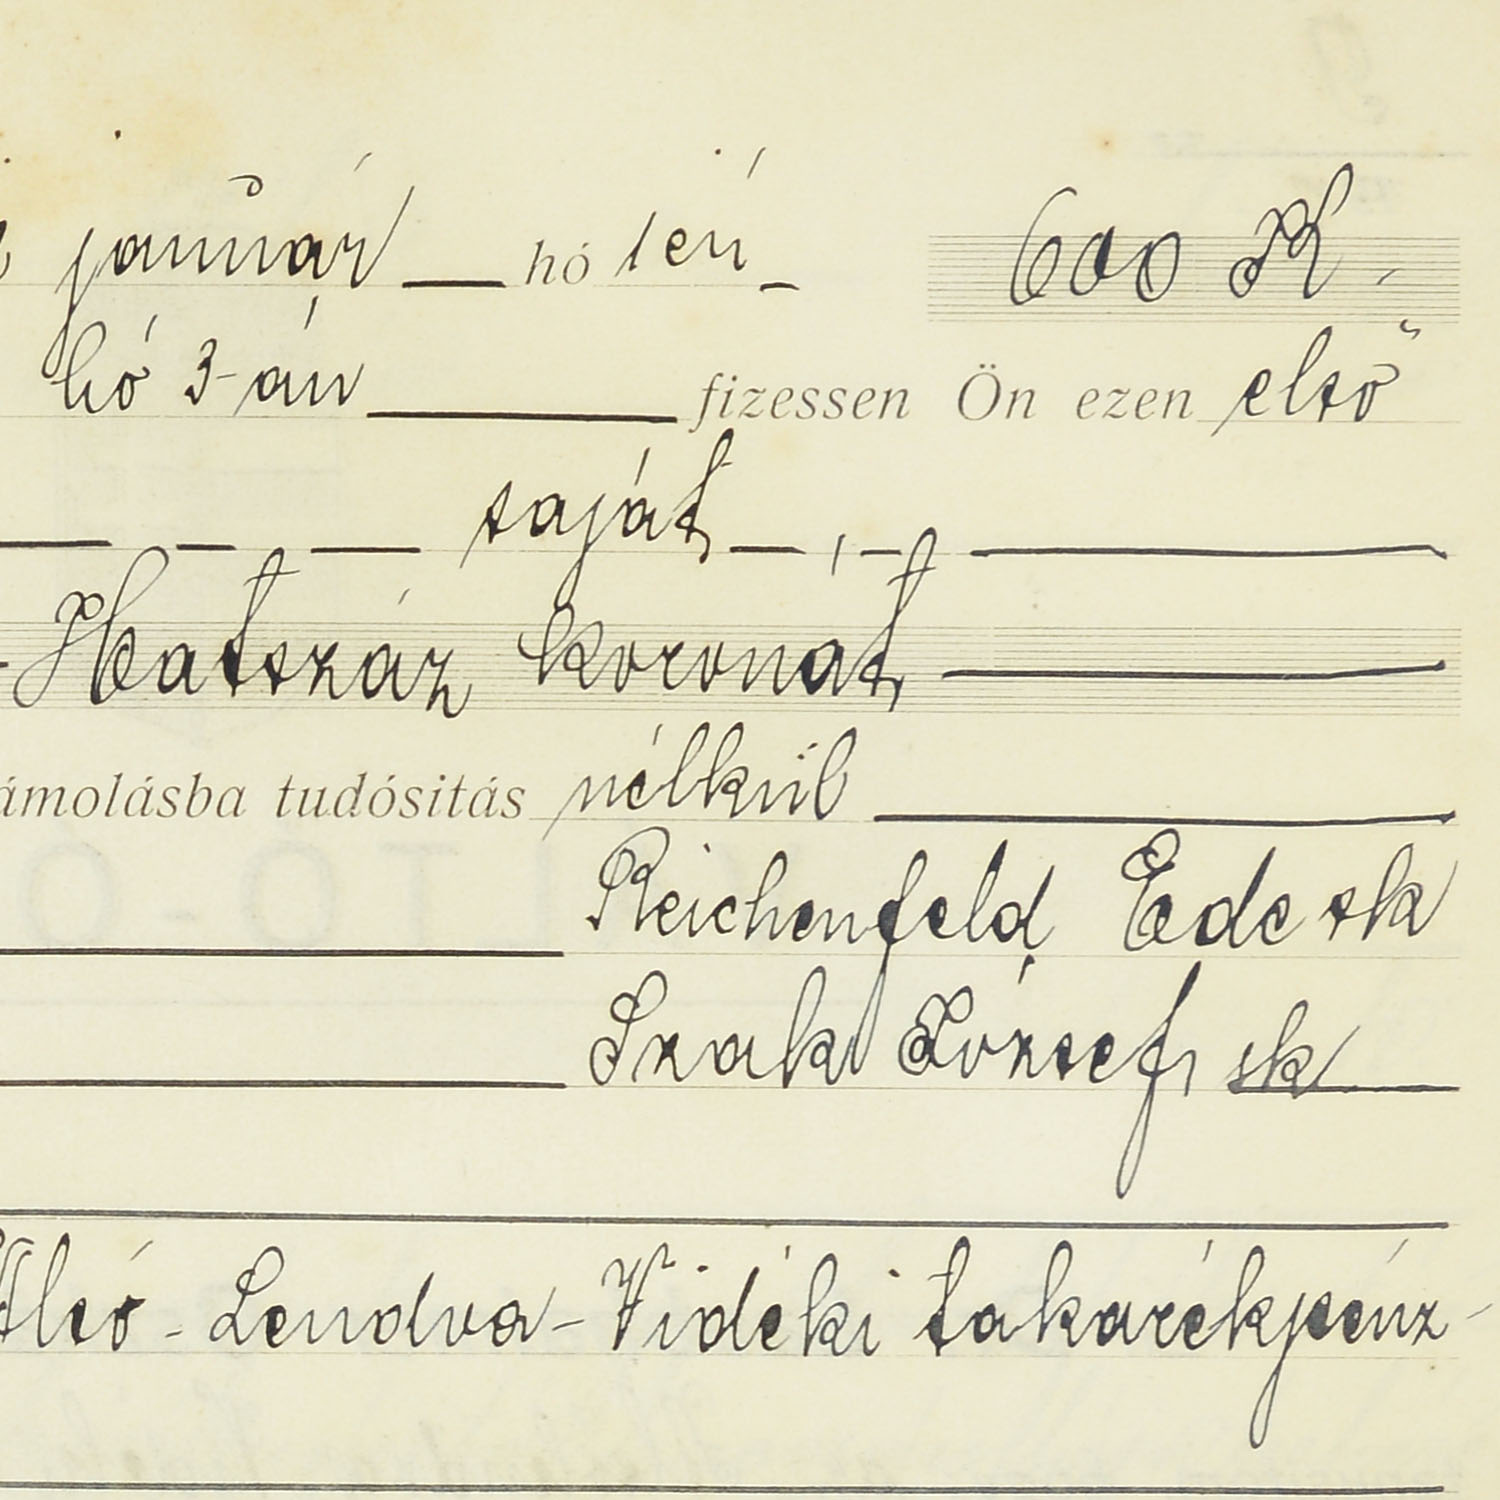 január hó 1én 600 K
hó 3-án fizessen Ön ezen első
saját
Hatszáz koronát
ámolásba tudósitás nélkül
Reichenfeld Ede sk
Szak József sk
Alsó-Lendva-Vidéki takarékpénz-